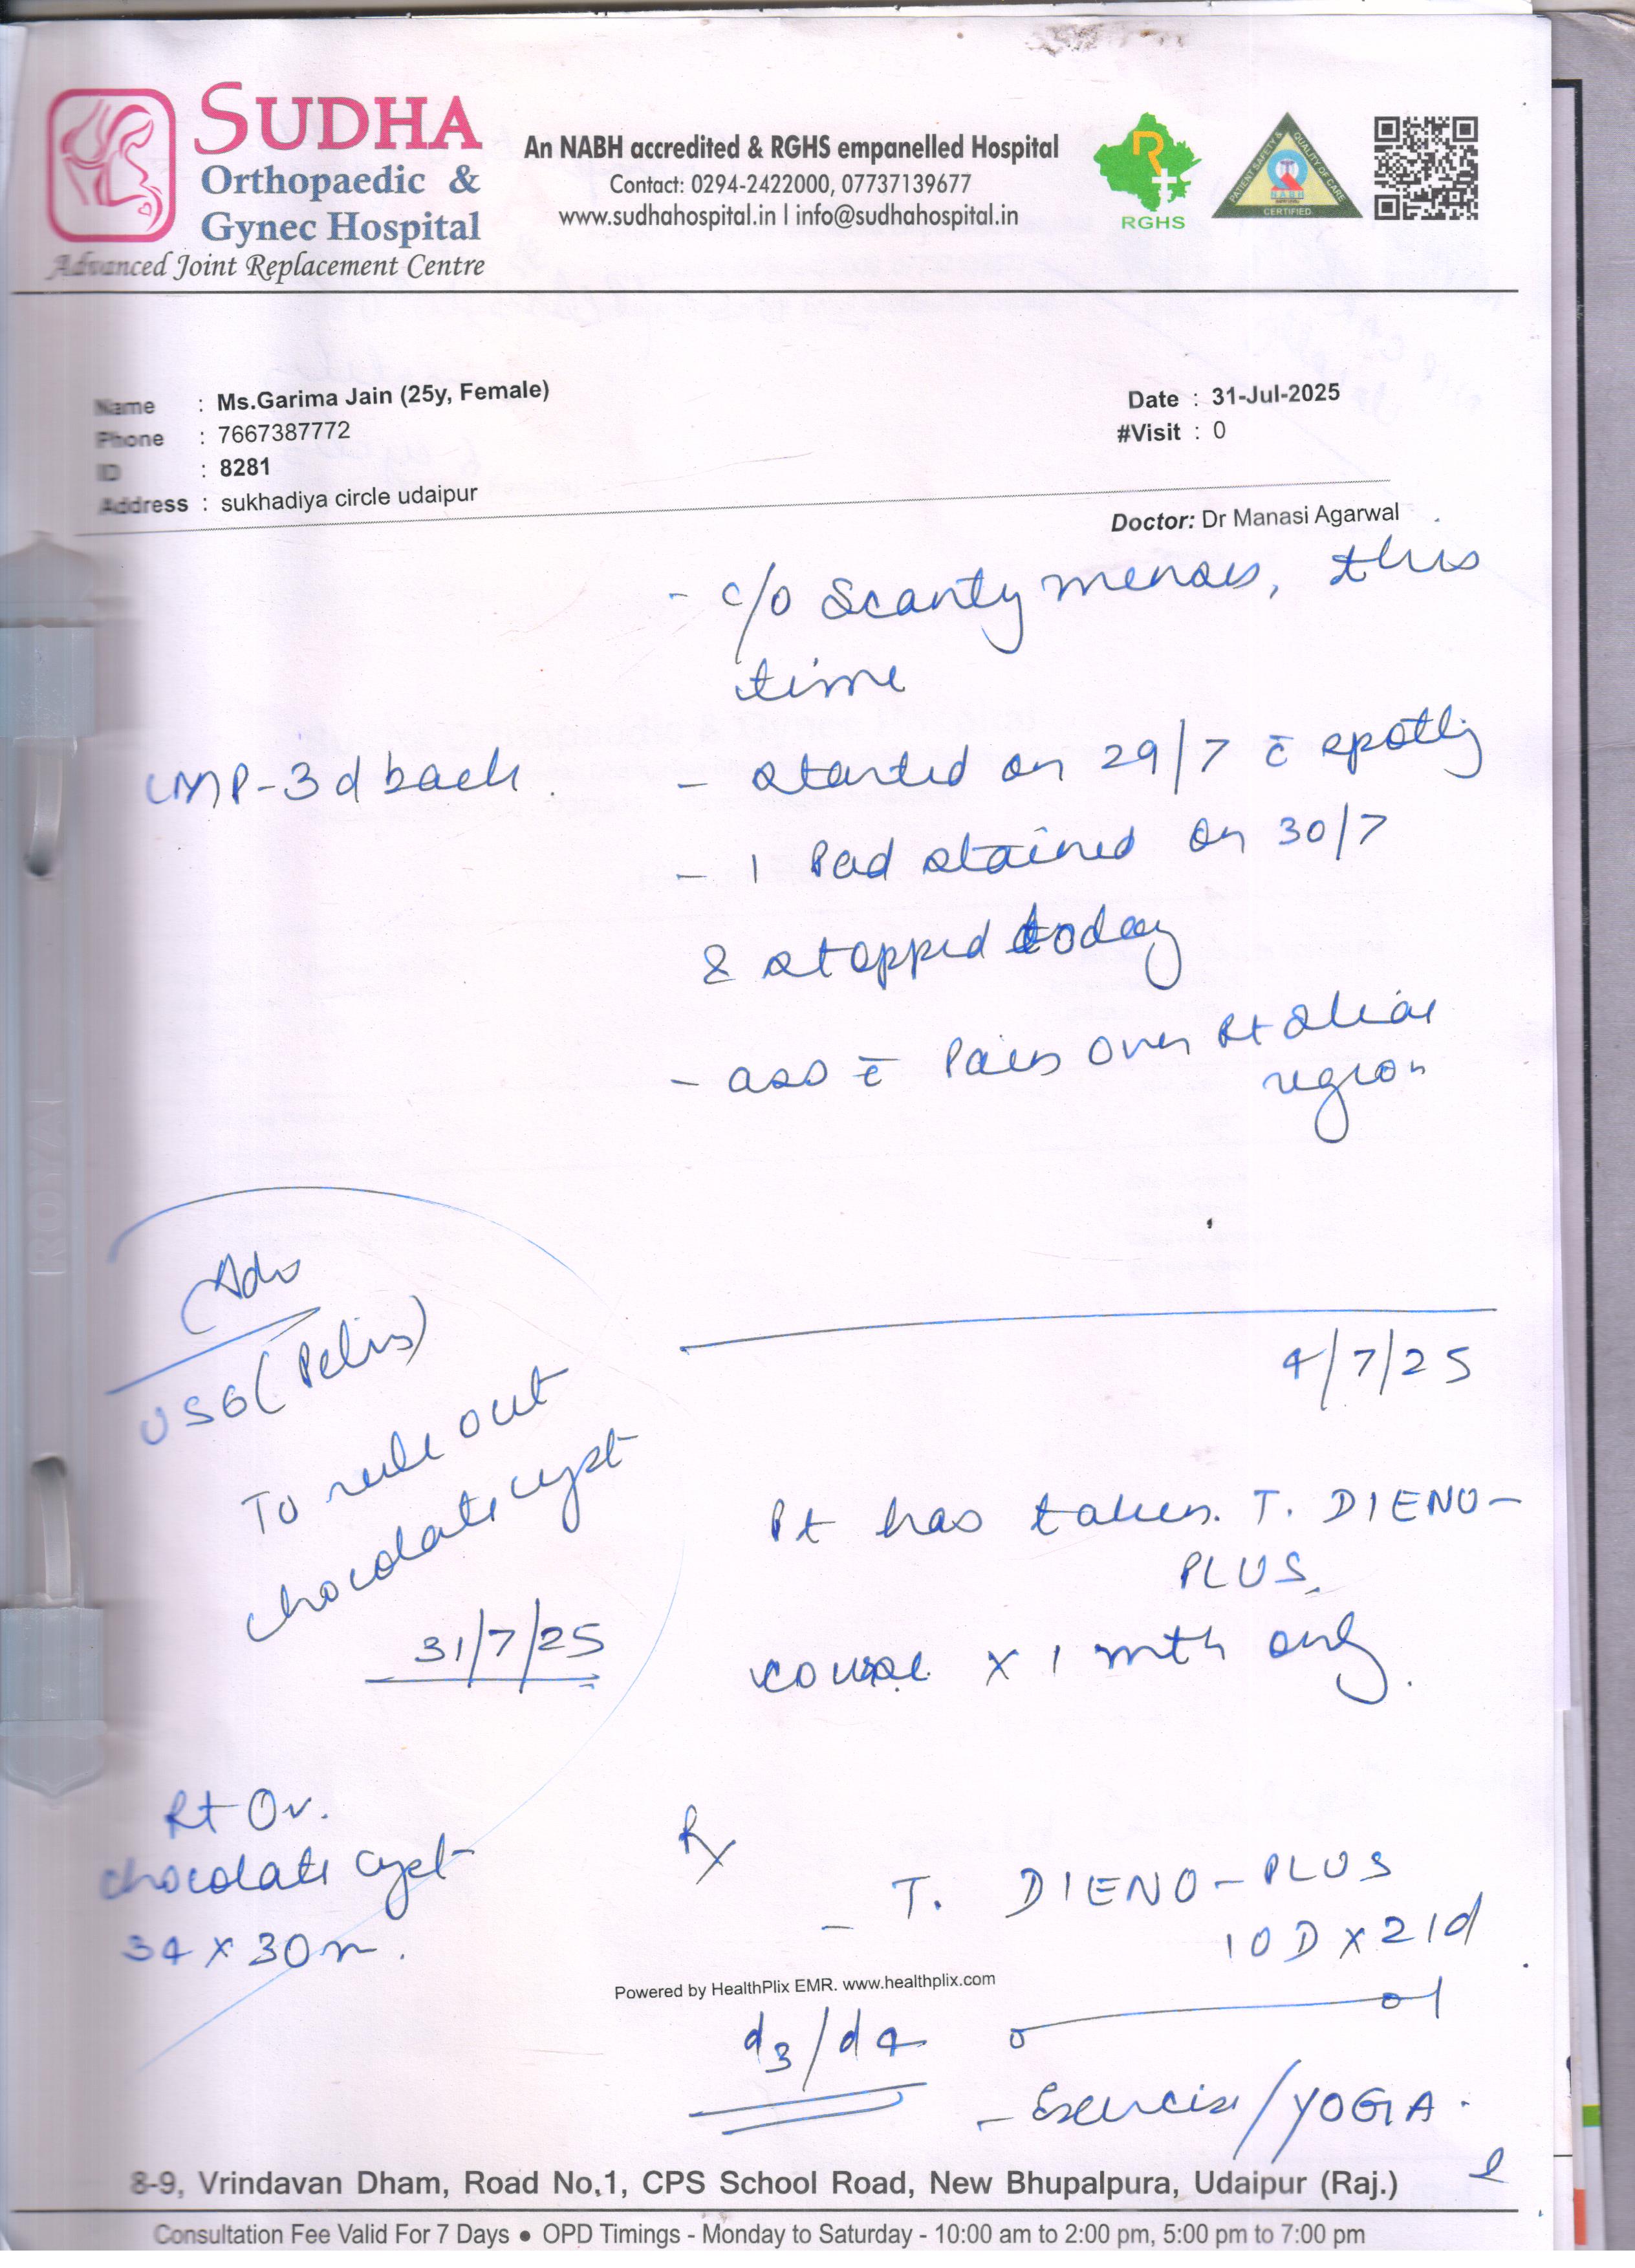 SUDHA
Orthopaedic &
Gynec Hospital
Advanced Joint Replacement Centre
An NABH accredited & RGHS empanelled Hospital
Contact: 0294-2422000, 07737139677
www.sudhahospital.in | info@sudhahospital.in
RGHS
PATIENT SAFETY & QUALITY OF CARE
NABH
CERTIFIED
Name : Ms.Garima Jain (25y, Female)
Phone : 7667387772
ID : 8281
Address : sukhadiya circle udaipur
Date : 31-Jul-2025
#Visit : 0
Doctor: Dr Manasi Agarwal
- c/o Scanty menses, this
time
LMP-3 d back.
- started on 29/7 c̄ spotting
- 1 Pad stained on 30/7
& stopped today
- ass c̄ Pain over Rt iliac
region
Adv
USG (Pelvis)
To rule out
chocolate cyst
31/7/25
4/7/25
Pt has taken. T. DIENO-
PLUS.
course x 1 mth only.
Rt Ov.
chocolate cyst
34 x 30 m.
Rx
- T. DIENO-PLUS
1 OD x 21d
Powered by HealthPlix EMR. www.healthplix.com
d3/d4
- Exercise/YOGA.
8-9, Vrindavan Dham, Road No.1, CPS School Road, New Bhupalpura, Udaipur (Raj.)
Consultation Fee Valid For 7 Days ● OPD Timings - Monday to Saturday - 10:00 am to 2:00 pm, 5:00 pm to 7:00 pm
ROYAL